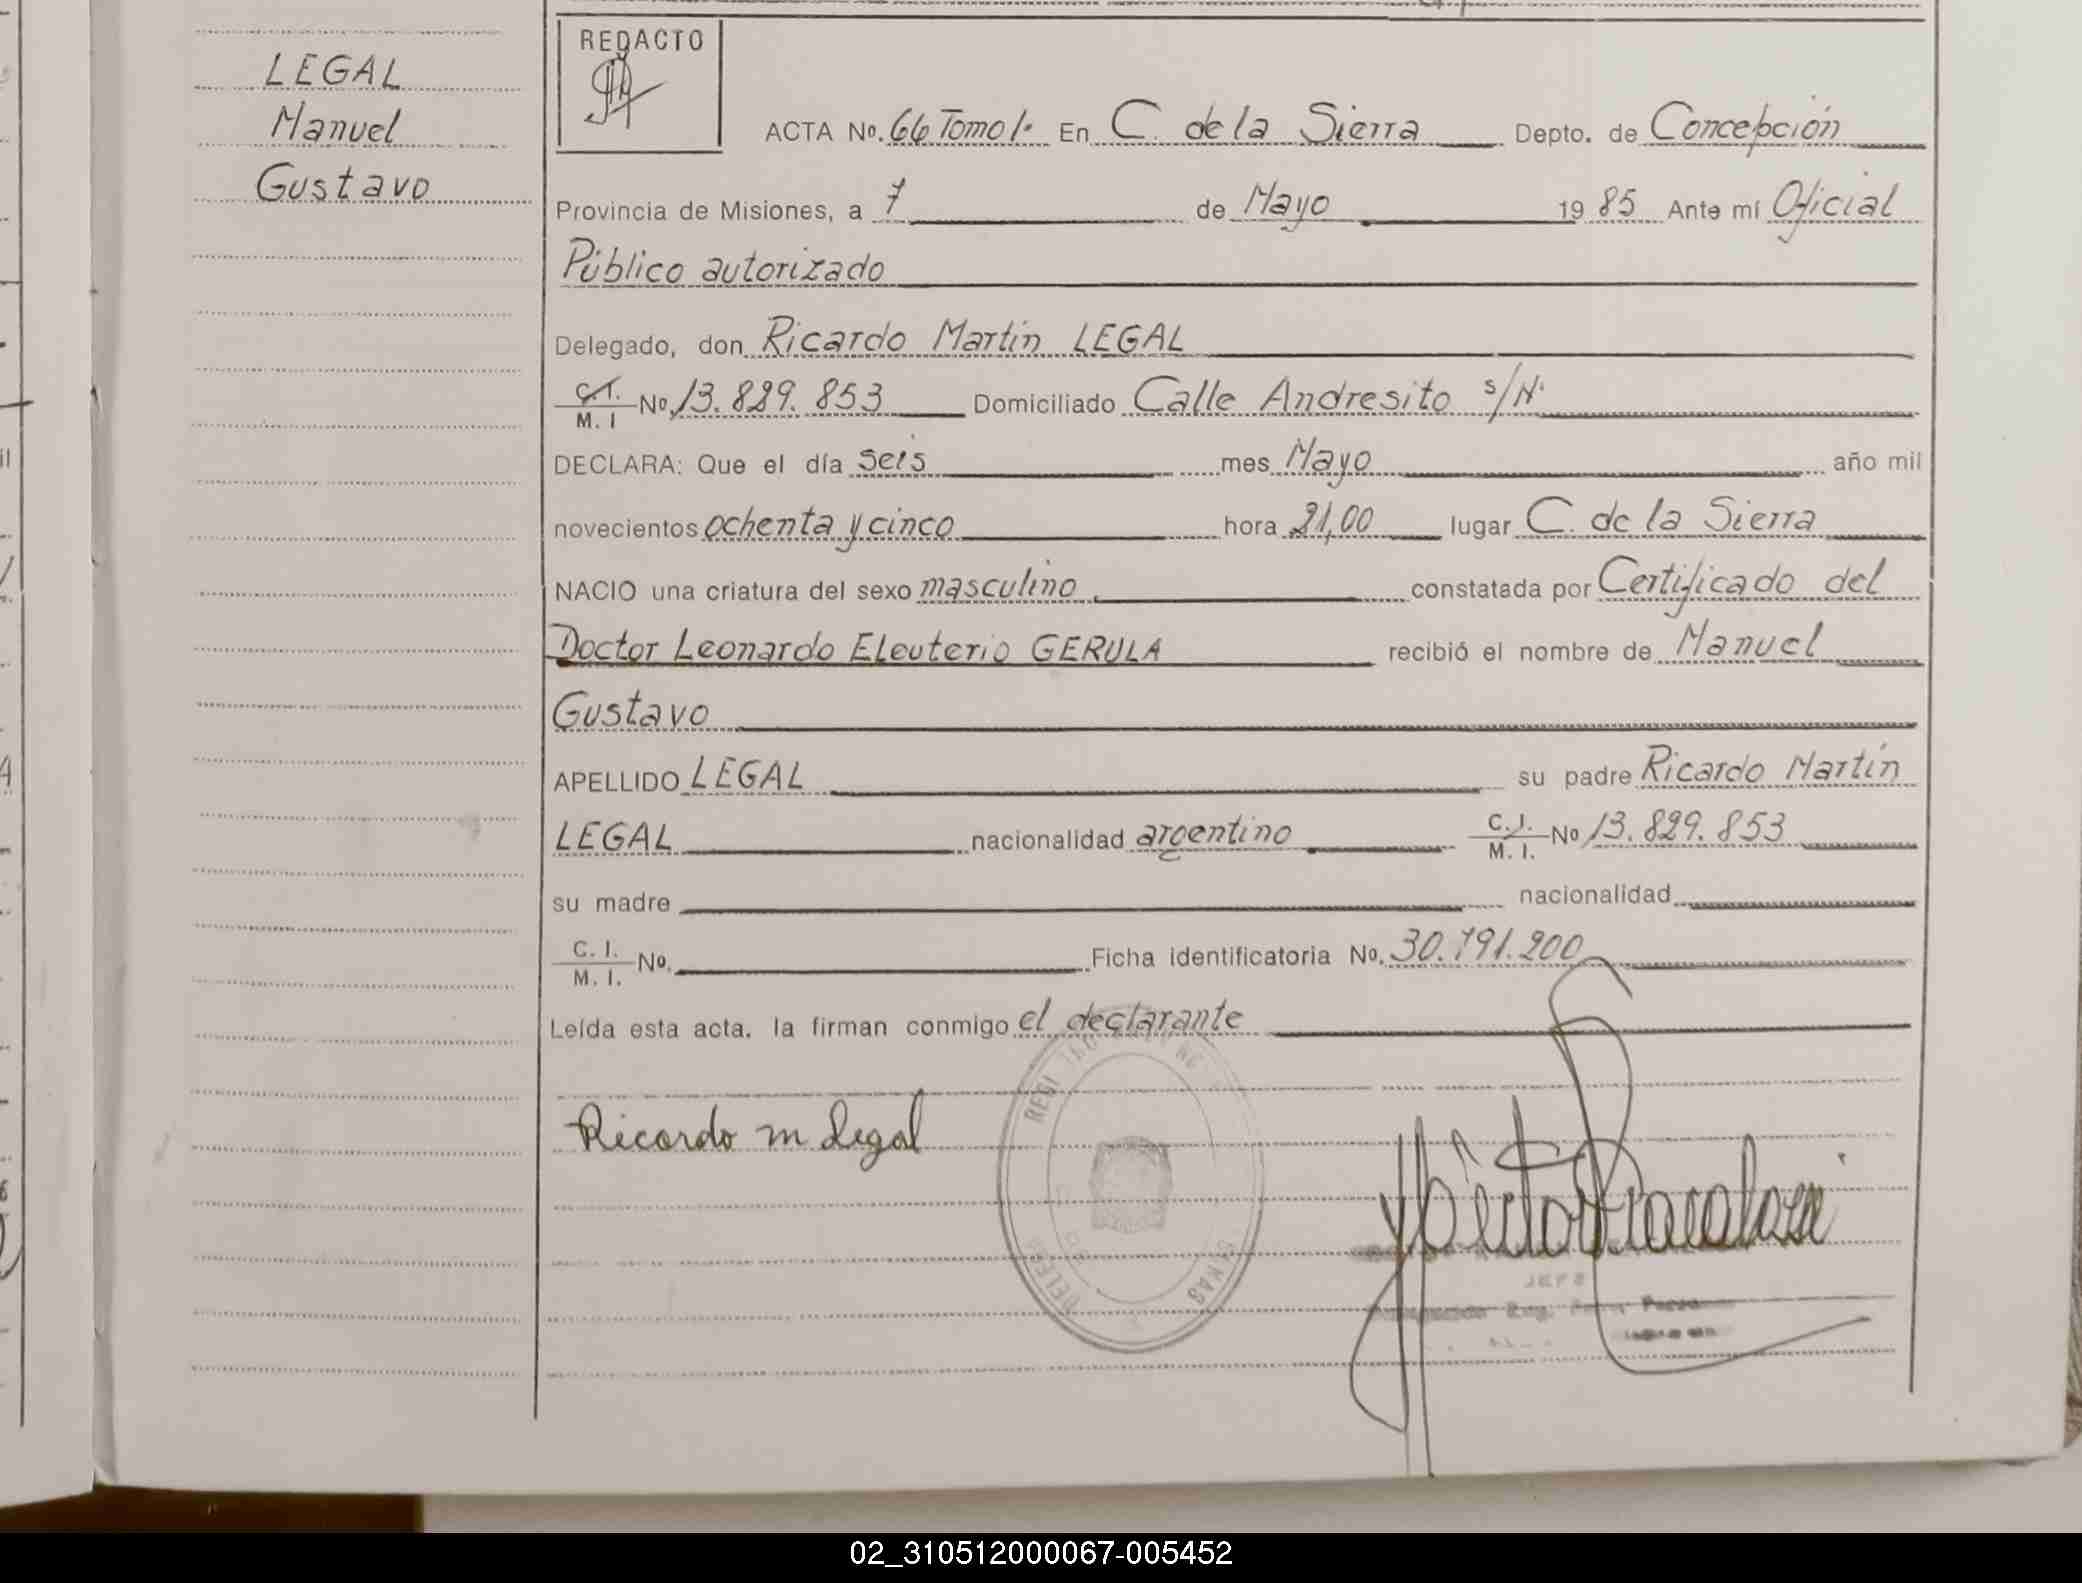 LEGAL
Manuel
Gustavo
REDACTO
ACTA No. 66 Tomo 1º En C. de la Sierra Depto. de Concepción
Provincia de Misiones, a 7 de Mayo 1985 Ante mí Oficial
Público autorizado
Delegado, don Ricardo Martín LEGAL
C.I. M. I No. 13.829.853 Domiciliado Calle Andresito s/Nº
DECLARA: Que el día seis mes Mayo año mil
novecientos ochenta y cinco hora 21,00 lugar C. de la Sierra
NACIO una criatura del sexo masculino constatada por Certificado del
Doctor Leonardo Eleuterio GERULA recibió el nombre de Manuel
Gustavo
APELLIDO LEGAL su padre Ricardo Martín
LEGAL nacionalidad argentino C.I. M. I. No 13.829.853
su madre nacionalidad
C. I. M. I. No. Ficha identificatoria No. 30.791.200
Leída esta acta, la firman conmigo el declarante
Ricardo m Legal
JEFE
02_310512000067-005452